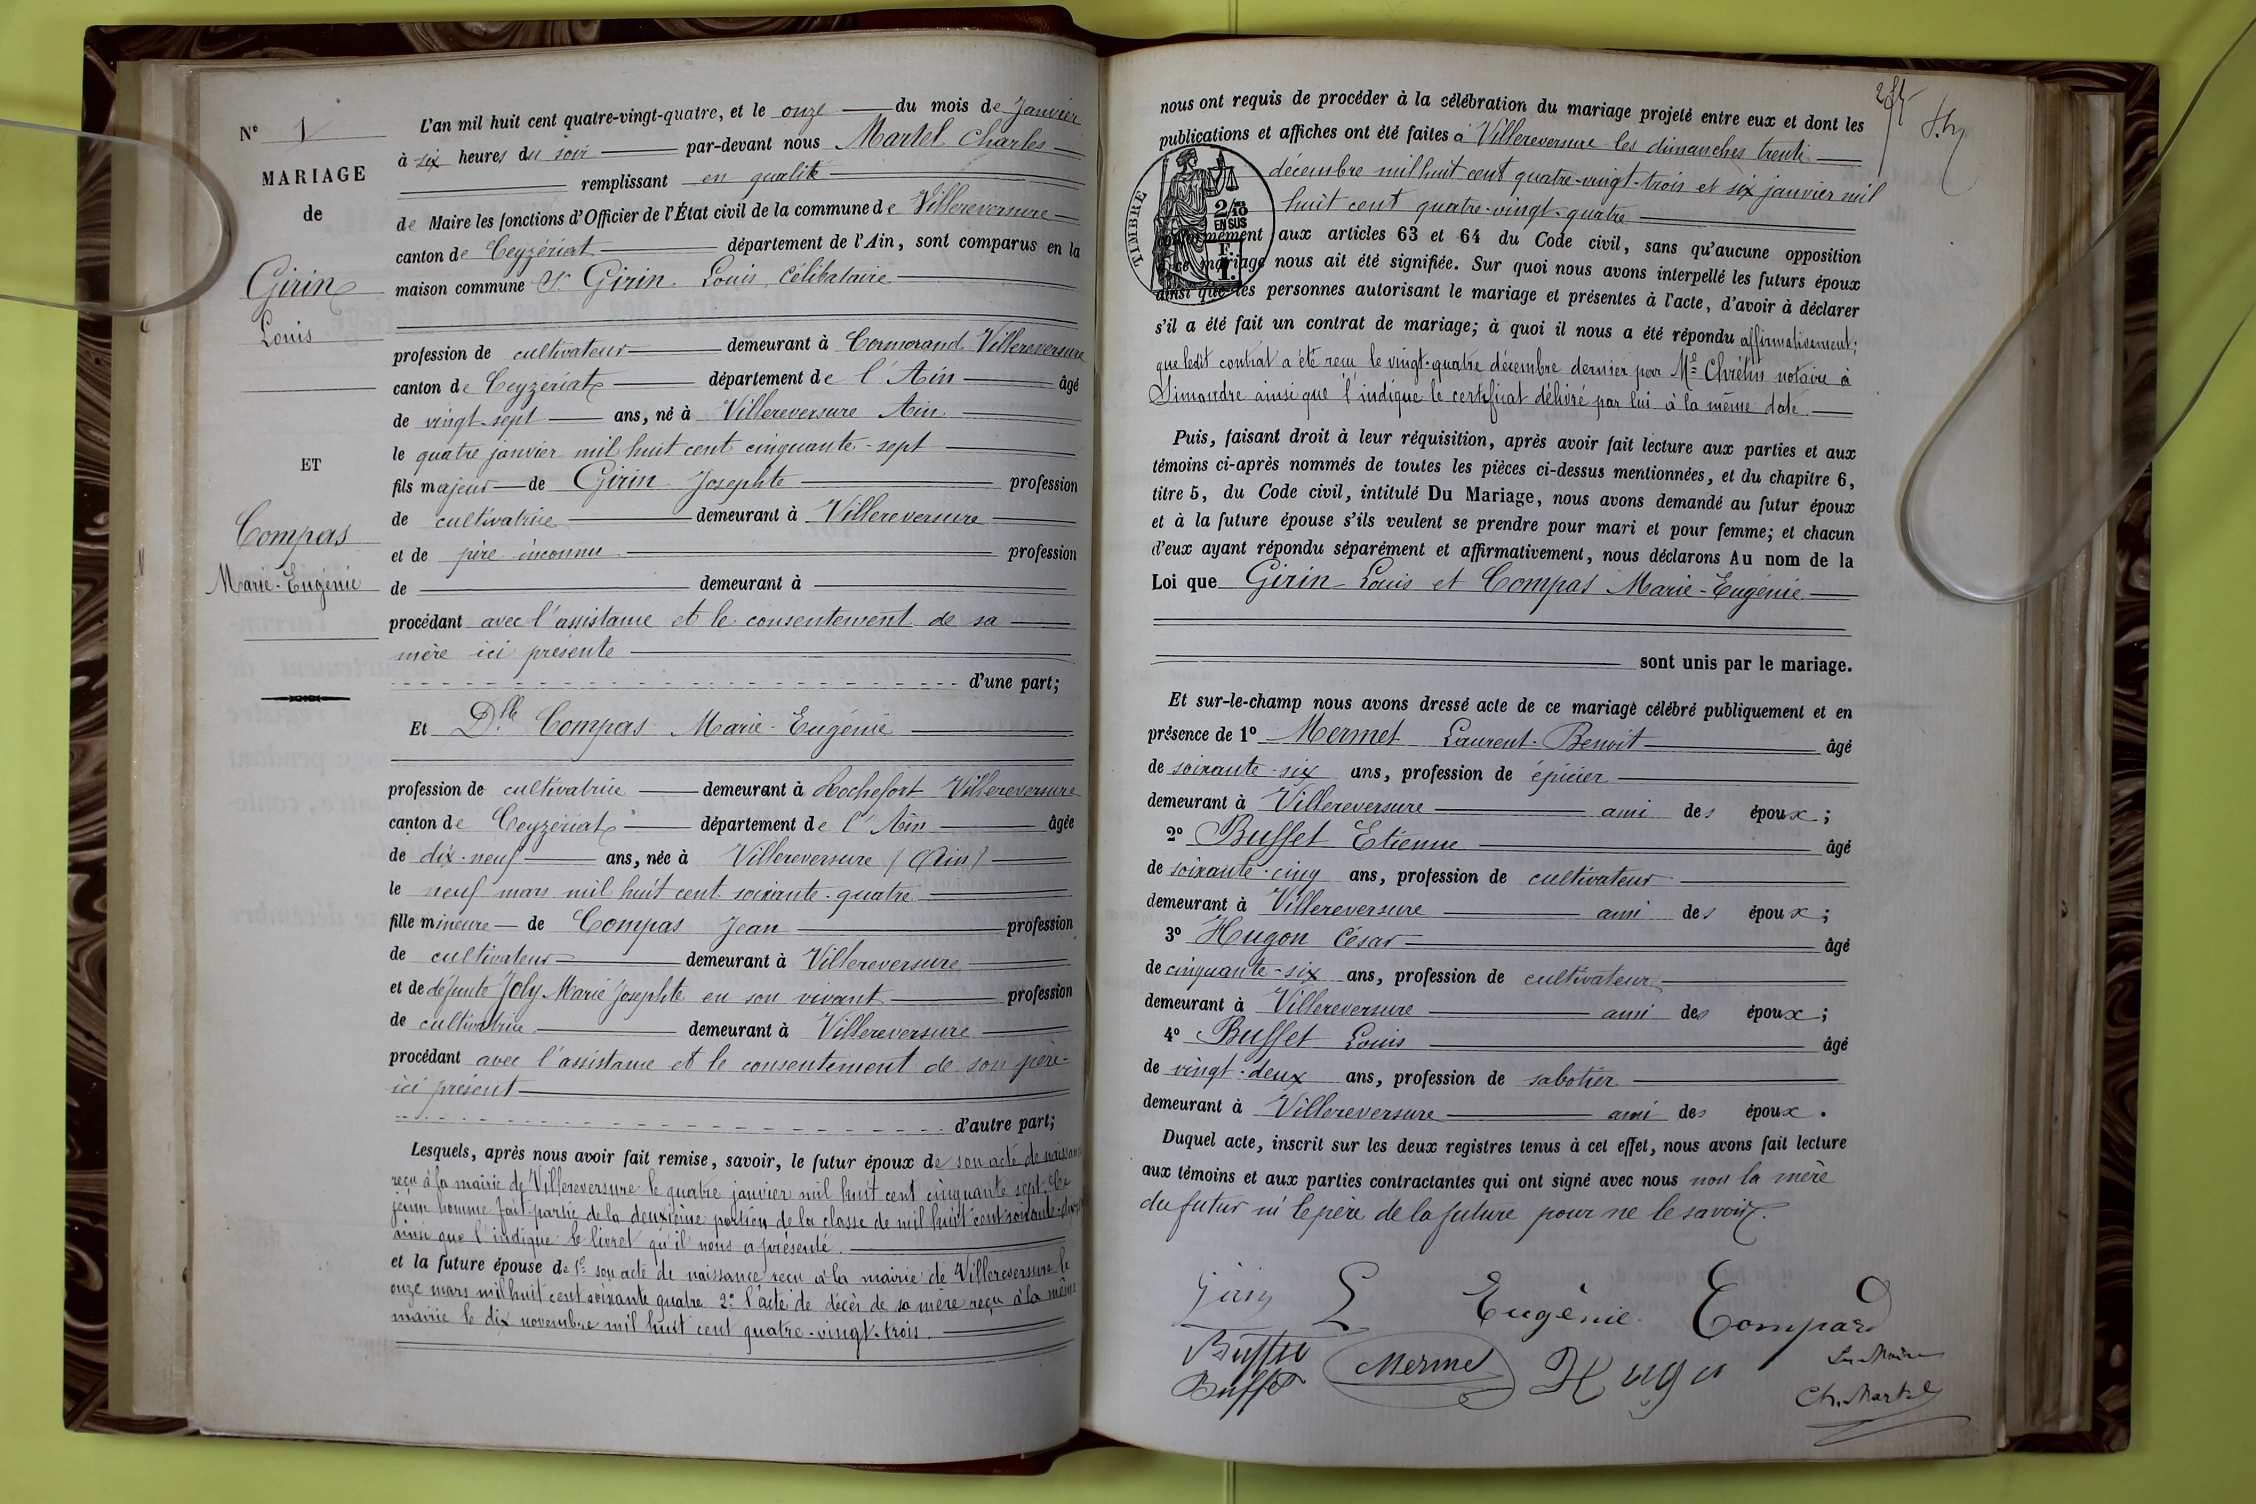 N° 1
MARIAGE
de
Girin
Louis
ET
Compas
Marie-Eugénie
L'an mil huit cent quatre-vingt-quatre, et le onze du mois de Janvier
à six heures du soir par-devant nous Martel Charles
remplissant en qualité
de Maire les fonctions d'Officier de l'État civil de la commune de Villereversure
canton de Ceyzériat département de l'Ain, sont comparus en la
maison commune Sr Girin Louis, Célibataire
profession de cultivateur demeurant à Cormorand Villereversure
canton de Ceyzériat département de l'Ain âgé
de vingt-sept ans, né à Villereversure Ain
le quatre janvier mil huit cent cinquante-sept
fils majeur de Girin Josephte profession
de cultivatrice demeurant à Villereversure
et de père inconnu profession
de demeurant à
procédant avec l'assistance et le consentement de sa
mère ici présente
d'une part;
Et Dlle Compas Marie-Eugénie
profession de cultivatrice demeurant à Rochefort Villereversure
canton de Ceyzériat département de l'Ain âgée
de dix-neuf ans, née à Villereversure (Ain)
le neuf mars mil huit cent soixante-quatre
fille mineure de Compas Jean profession
de cultivateur demeurant à Villereversure
et de défunte Joly Marie Josephte en son vivant profession
de cultivatrice demeurant à Villereversure
procédant avec l'assistance et le consentement de son père
ici présent
d'autre part;
Lesquels, après nous avoir fait remise, savoir, le futur époux de son acte de naissance
reçu à la mairie de Villereversure le quatre janvier mil huit cent cinquante sept. Ce
jeune homme fait partie de la deuxième portion de la classe de mil huit cent soixante-dix-sept
ainsi que l'indique le livret qu'il nous a présenté.
et la future épouse de 1° son acte de naissance reçu à la mairie de Villereversure le
onze mars mil huit cent soixante quatre 2° l'acte de décès de sa mère reçu à la même
mairie le dix novembre mil huit cent quatre-vingt-trois.
nous ont requis de procéder à la célébration du mariage projeté entre eux et dont les
publications et affiches ont été faites à Villereversure les dimanches trente
décembre mil huit cent quatre-vingt-trois et six janvier mil
huit cent quatre-vingt-quatre
TIMBRE
2/10 EN SUS
F. 1.
conformément aux articles 63 et 64 du Code civil, sans qu'aucune opposition
à ce mariage nous ait été signifiée. Sur quoi nous avons interpellé les futurs époux
ainsi que les personnes autorisant le mariage et présentes à l'acte, d'avoir à déclarer
s'il a été fait un contrat de mariage; à quoi il nous a été répondu affirmativement;
que ledit contrat a été reçu le vingt-quatre décembre dernier par Me Chrétin notaire à
Simandre ainsi que l'indique le certificat délivré par lui à la même date.
Puis, faisant droit à leur réquisition, après avoir fait lecture aux parties et aux
témoins ci-après nommés de toutes les pièces ci-dessus mentionnées, et du chapitre 6,
titre 5, du Code civil, intitulé Du Mariage, nous avons demandé au futur époux
et à la future épouse s'ils veulent se prendre pour mari et pour femme; et chacun
d'eux ayant répondu séparément et affirmativement, nous déclarons Au nom de la
Loi que Girin Louis et Compas Marie-Eugénie
sont unis par le mariage.
Et sur-le-champ nous avons dressé acte de ce mariage célébré publiquement et en
présence de 1° Mermet Laurent-Benoit âgé
de soixante-six ans, profession de épicier
demeurant à Villereversure ami des époux;
2° Buffet Etienne âgé
de soixante-cinq ans, profession de cultivateur
demeurant à Villereversure ami des époux;
3° Hugon César âgé
de cinquante-six ans, profession de cultivateur
demeurant à Villereversure ami des époux;
4° Buffet Louis âgé
de vingt-deux ans, profession de sabotier
demeurant à Villereversure ami des époux.
Duquel acte, inscrit sur les deux registres tenus à cet effet, nous avons fait lecture
aux témoins et aux parties contractantes qui ont signé avec nous non la mère
du futur ni le père de la future pour ne le savoir.
Girin L Eugénie Compard
Buffet Mermet Hugon Le Maire
Buffet Ch. Martel